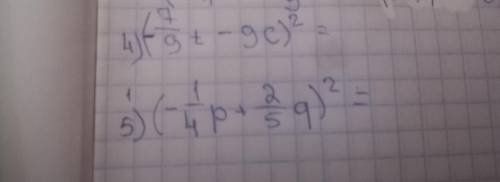 4) (-7/9 t - 9c)² =
5) (-1/4 p + 2/5 q)² =